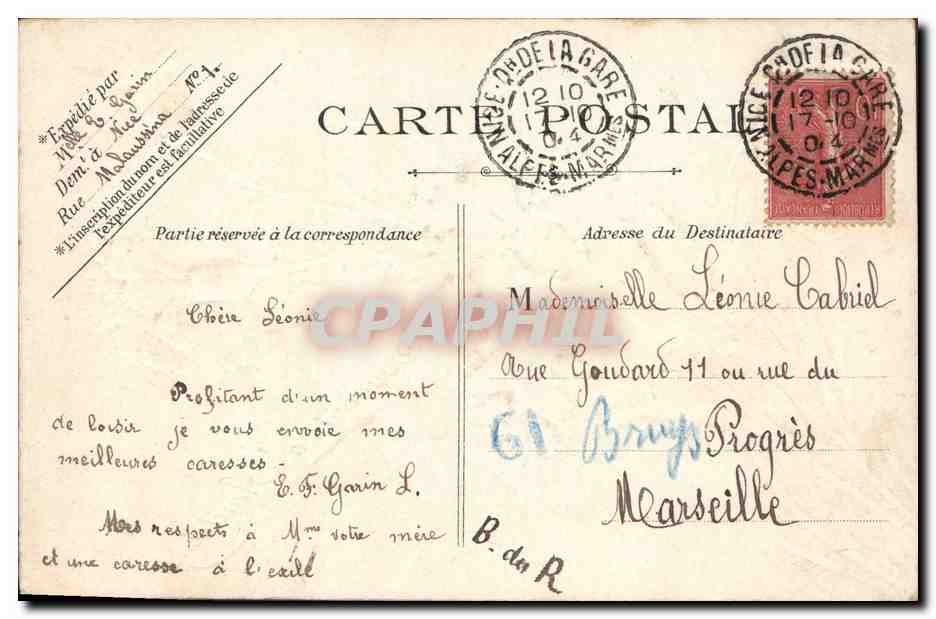 *Expédié par
Melle E Garin
Dem.t à Nice
Rue Malaussina No 1.
*L'inscription du nom et de l'adresse de
l'expéditeur est facultative
CARTE POSTALE
NICE - Qr DE LA GARE
12 10
17 -10
04
ALPES-MARMES
NICE - Qr DE LA GARE
12 10
17 -10
04
ALPES-MARMES
Partie réservée à la correspondance
Adresse du Destinataire
Chère Léonie
Profitant d'un moment
de loisir je vous envoie mes
meilleures caresses -
E. F. Garin L.
Mes respects à Mme votre mère
et une caresse à l'exilé
Mademoiselle Léonie Cabriol
Rue Goudard 11 ou rue du
61 Bruys Progrès
Marseille
B. du R
CPAPHIL